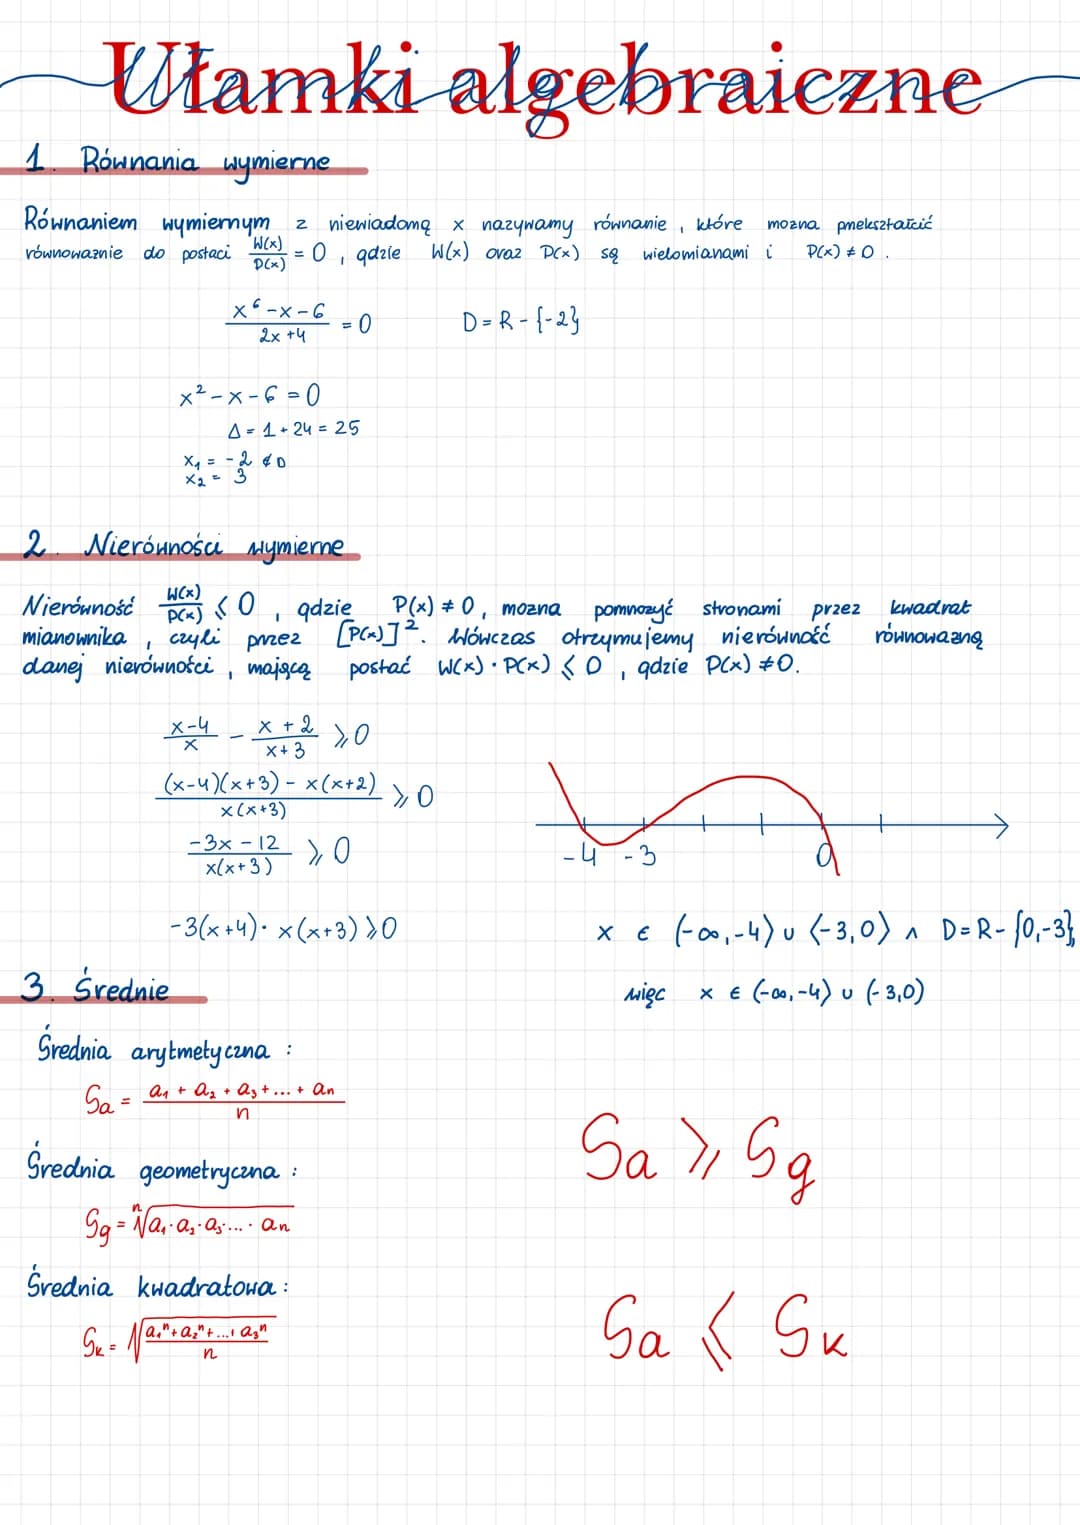 Ułamki algebraiczne
1. Równania wymierne
Równaniem wymiernym z niewiadomą x nazywamy równanie, które mozna pnekształcić
równowaznie do postaci W(x)/P(x) = 0, gdzie W(x) oraz P(x) są wielomianami i P(x) ≠ 0.
(x⁶-x-6)/(2x+4) = 0 D = R - {-2}
x² - x - 6 = 0
Δ = 1 + 24 = 25
x₁ = -2 ∉ D
x₂ = 3
2. Nierówności wymierne
Nierówność W(x)/P(x) ⩽ 0, gdzie P(x) ≠ 0, mozna pomnozyć stronami przez kwadrat
mianownika, czyli pnez [P(x)]². Wówczas otrzymujemy nierówność równowazną
danej nierówności, mającą postać W(x) · P(x) ⩽ 0, gdzie P(x) ≠ 0.
(x-4)/x - (x+2)/(x+3) ⩾ 0
((x-4)(x+3) - x(x+2))/(x(x+3)) ⩾ 0
(-3x-12)/(x(x+3)) ⩾ 0
-4 -3 0
-3(x+4) · x(x+3) ⩾ 0
x ∈ (-∞,-4⟩ ∪ ⟨-3,0⟩ ∧ D = R - {0,-3},
więc x ∈ (-∞,-4⟩ ∪ (-3,0)
3. Średnie
Średnia arytmetyczna :
Sa = (a₁ + a₂ + a₃ + ... + an)/n
Sa ⩾ Sg
Średnia geometryczna :
Sg = ⁿ√(a₁·a₂·a₃·...·an)
Średnia kwadratowa :
Sk = √((a₁ⁿ + a₂ⁿ + ... + a₃ⁿ)/n)
Sa ⩽ Sk